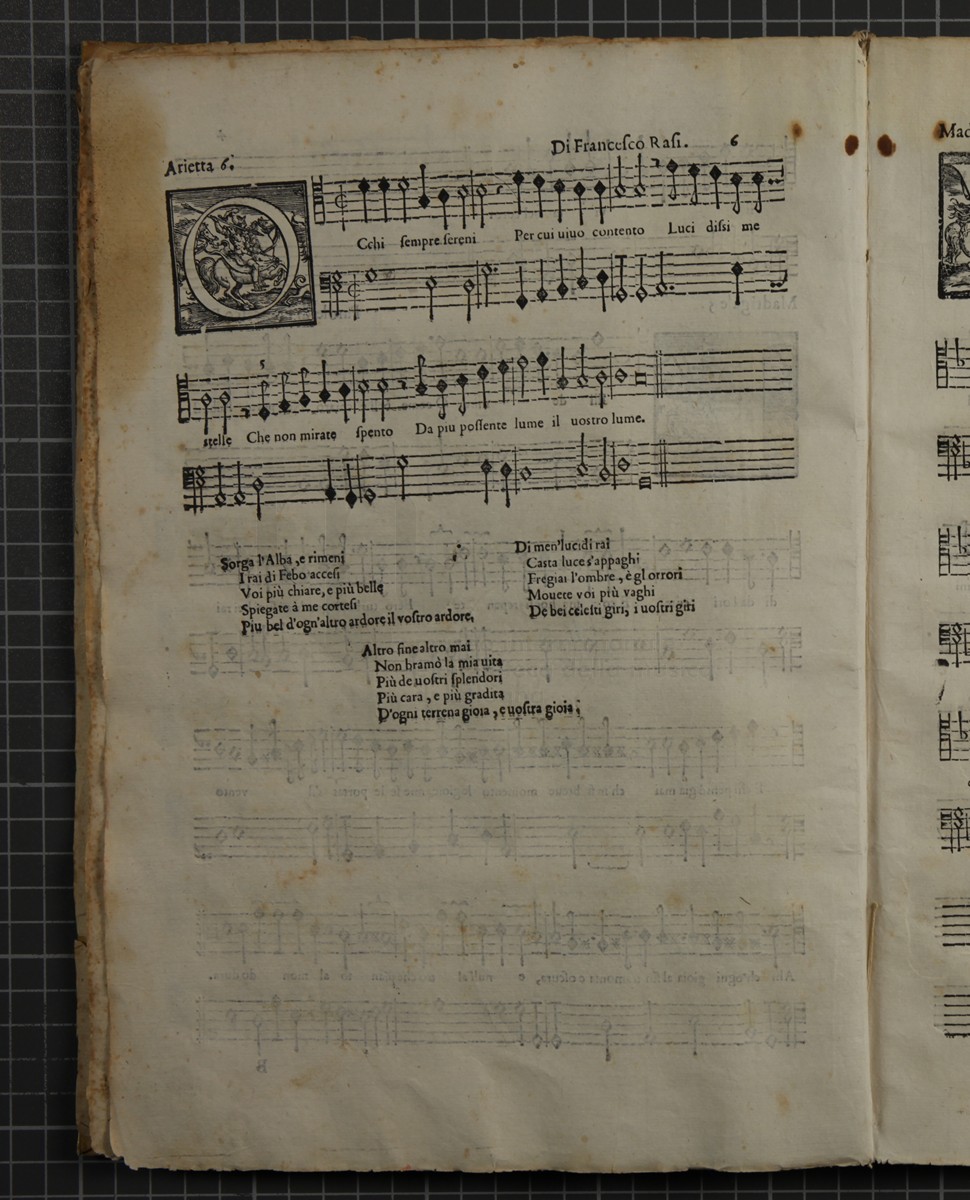 Arietta 6. Di Francesco Rasi. 6
OCchi sempre sereni Per cui uiuo contento Luci dissi me
stelle Che non mirate spento Da piu possente lume il uostro lume.
Sorga l'Alba, e rimeni
I rai di Febo accesi
Voi più chiare, e più belle
Spiegate à me cortesi
Piu bel d'ogn'altro ardore il vostro ardore,
Di men' lucidi rai
Casta luce s'appaghi
Fregiai l'ombre, è gl orrori
Mouete voi più vaghi
De bei celesti giri, i uostri giri
Altro fine altro mai
Non bramò la mia uita
Più de uostri splendori
Più cara, e più gradita
D'ogni terrena gioia, e uostra gioia;
Mad